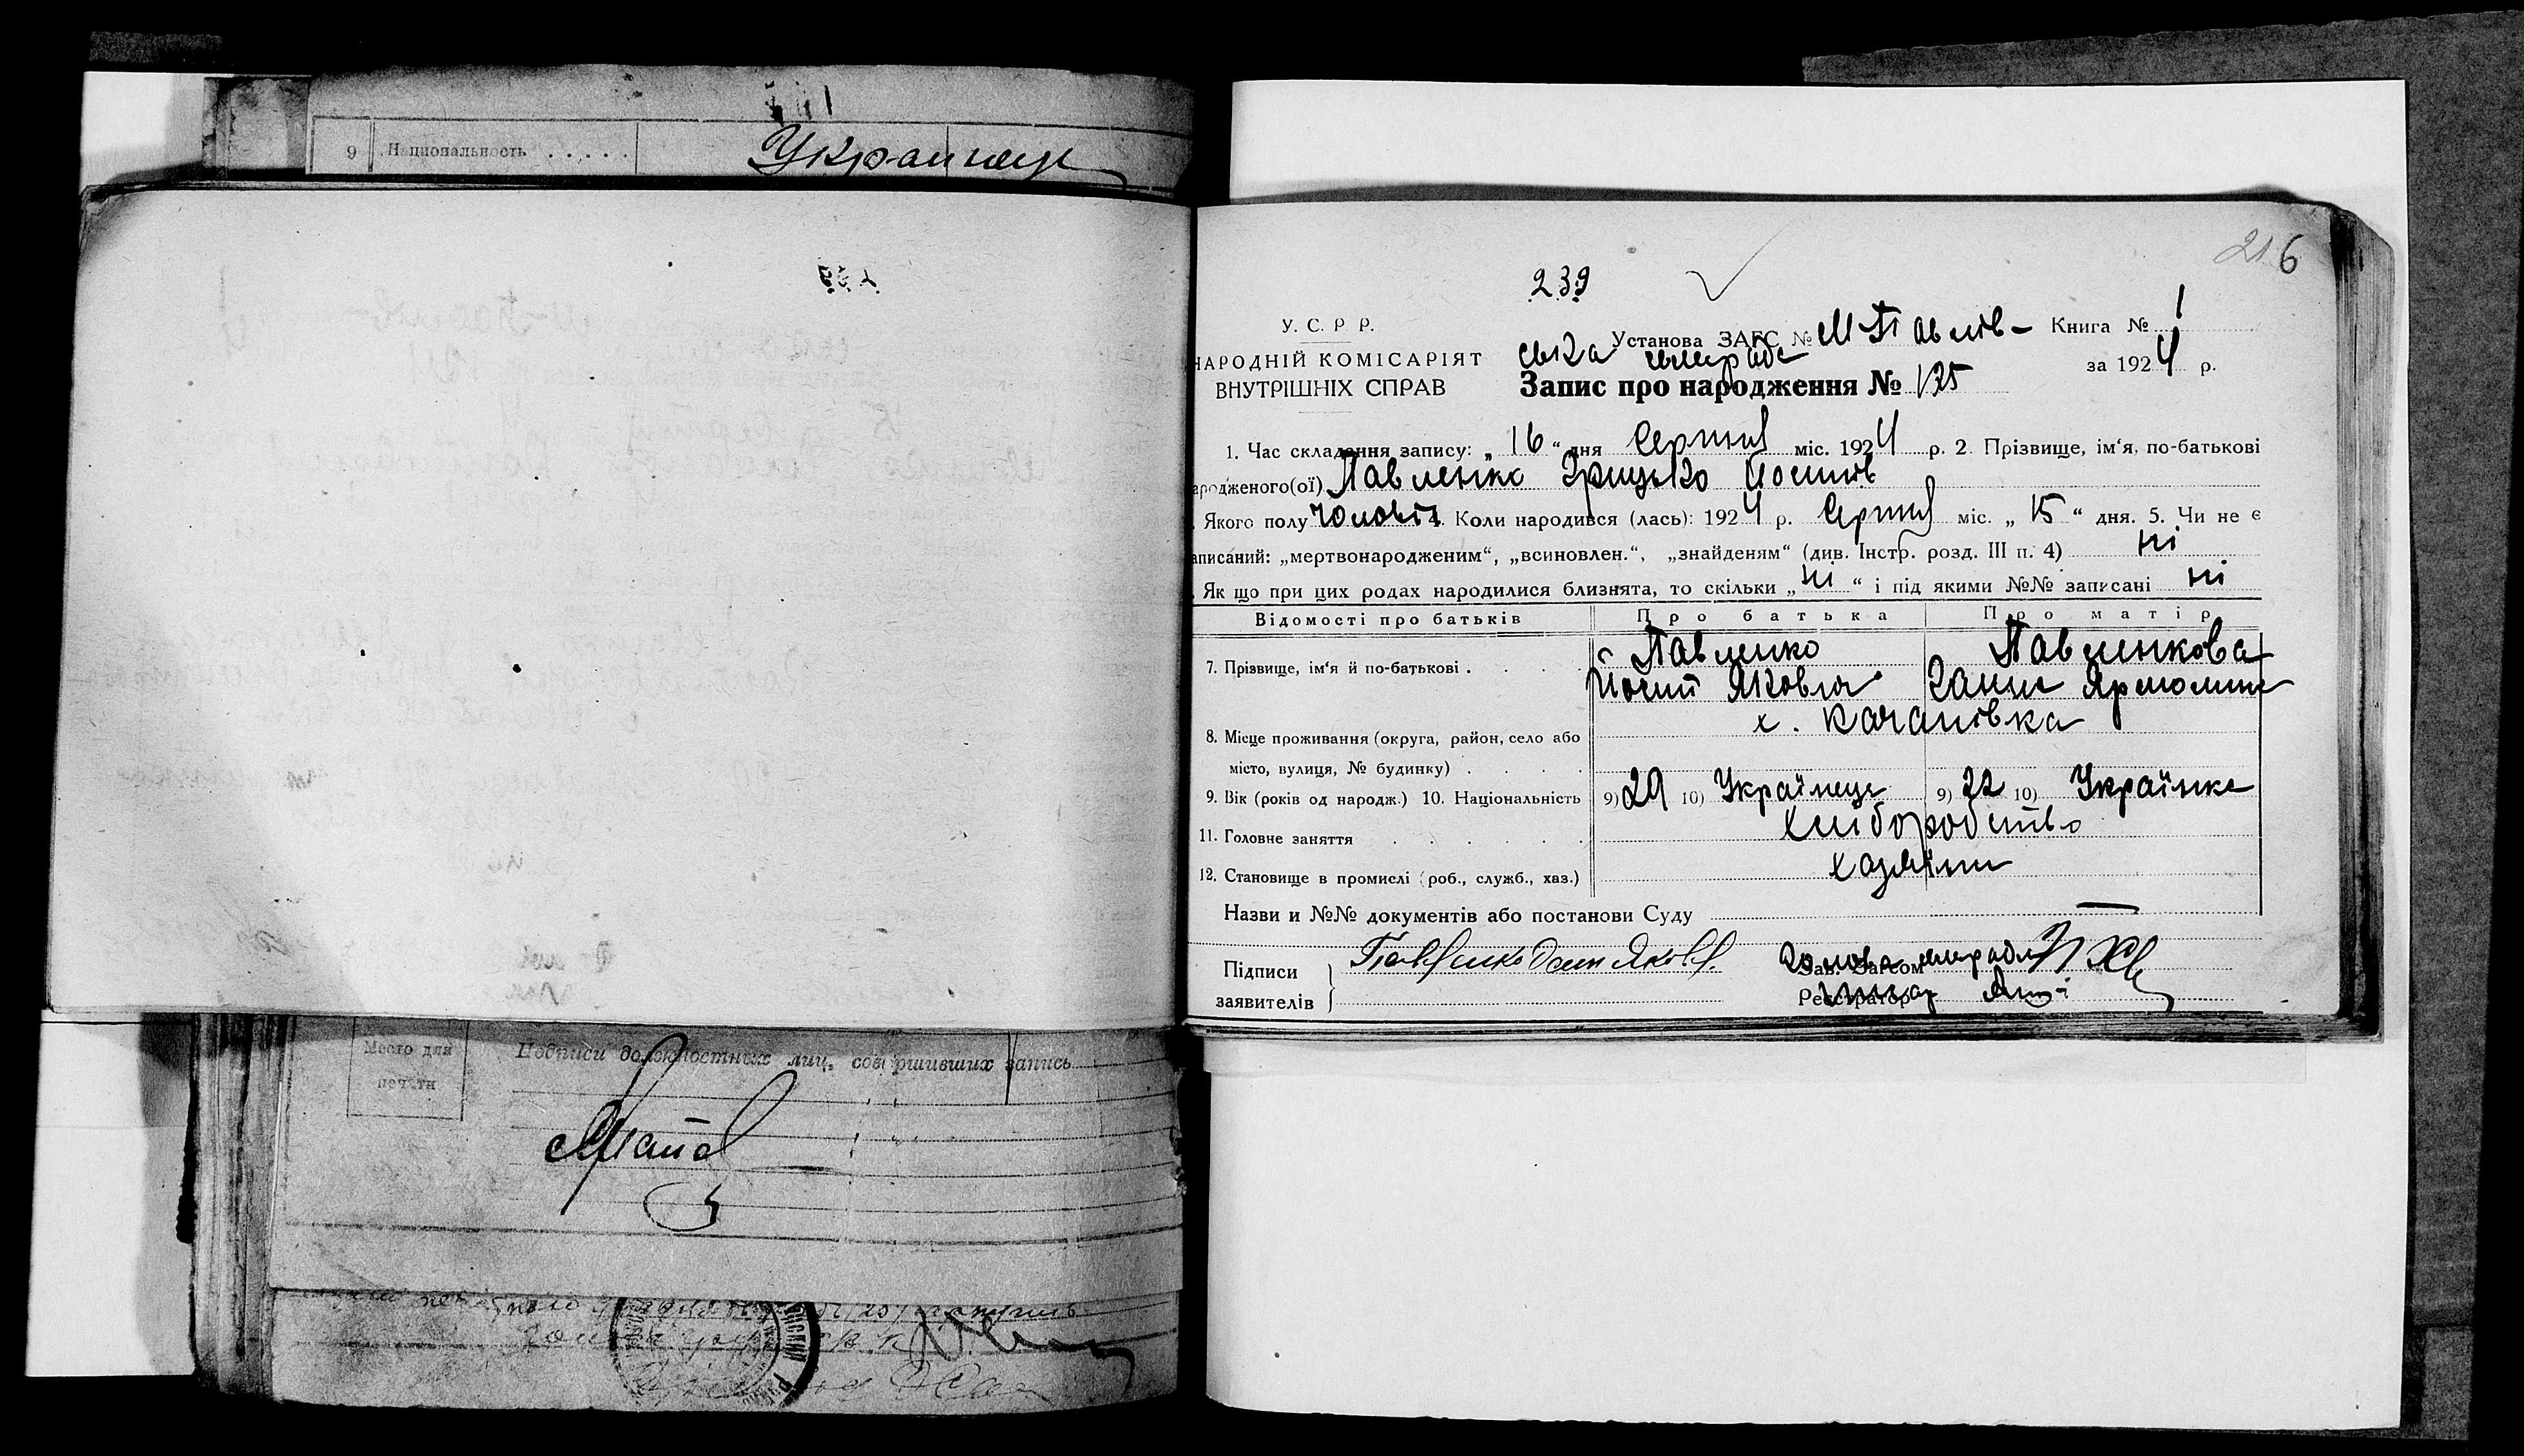 9 Национальность . . . . . Украинец
216
239
У. С. Р. Р.
НАРОДНІЙ КОМІСАРІЯТ
ВНУТРІШНІХ СПРАВ
Установа ЗАГС № М Павлів- Книга № 1
ська сільрада за 1924 р.
Запис про народження № 125
1. Час складання запису: „16“ дня Серпня міс. 1924 р. 2. Прізвище, ім‘я, по-батькові
ародженого(ої) Павленко Грицько Йосипів
Якого полу чоловіч. 4. Коли народився (лась): 1924 р. Серпня міс. „15“ дня. 5. Чи не є
аписаний: „мертвонародженим“, „всиновлен.“, „знайденям“ (див. Інстр. розд. III п. 4) ні
Як що при цих родах народилися близнята, то скільки „ні“ і під якими №№ записані ні
Відомості про батьків Про батька Про матір
7. Прізвище, ім‘я й по-батькові . . . . Павленко Павленкова
Йосип Яковів Ганна Ярмолина
х. Качанівка
8. Місце проживання (округа, район, село або
місто, вулиця, № будинку) . . . .
9. Вік (років од народж.) 10. Національність 9) 29 10) Українець 9) 22 10) Українка
11. Головне заняття . . . . . . хліборобство
12. Становище в промислі (роб., служб., хаз.) хазяїни
Назви и №№ документів або постанови Суду —
Підписи Павленко Яковл. Зав. Загсом Голова сільради
заявителів Реєстратор
Место для
печати
Подписи должностных лиц, совершивших запись